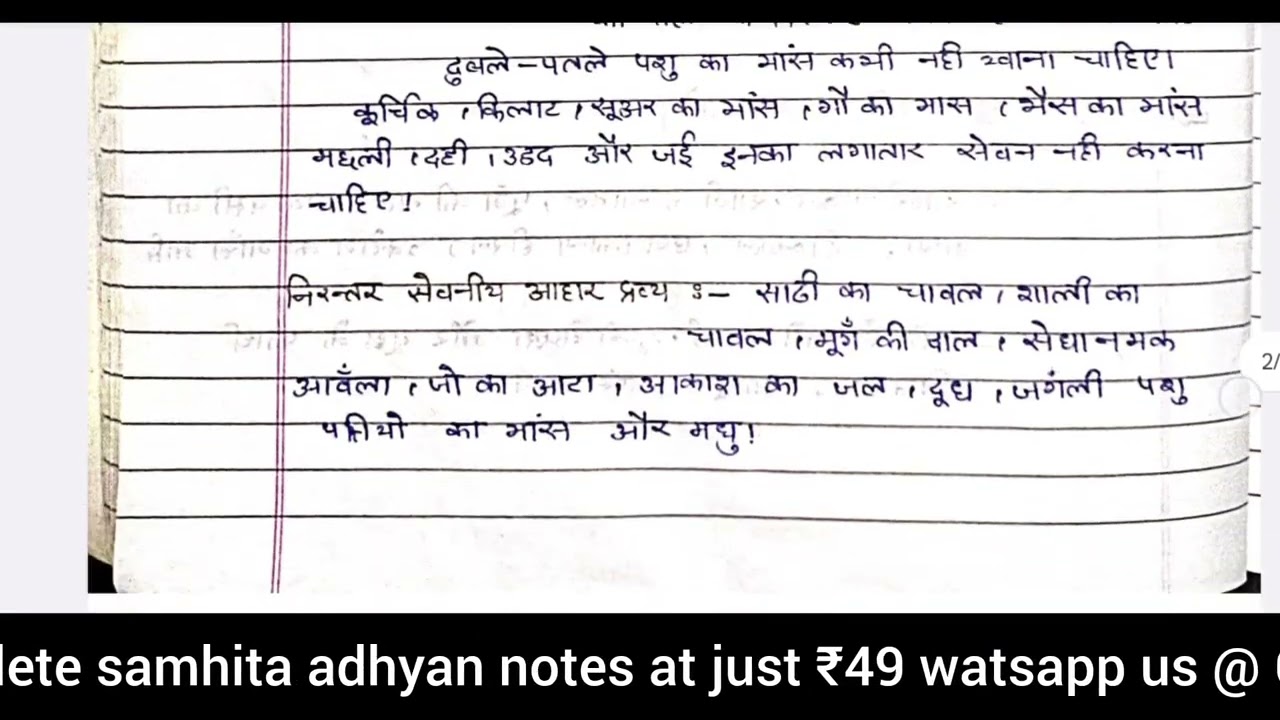 दुबले-पतले पशु का मांस कभी नही खाना चाहिए।
कूर्चिक, किलाट, सूअर का मांस, गौ का मास, भैस का मांस
मछली, दही, उडद और जई इनका लगातार सेवन नही करना
चाहिए!
निरन्तर सेवनीय आहार द्रव्य :- साठी का चावल, शाली का
चावल, मूगँ की दाल, सेधानमक
आवँला, जो का आटा, आकाश का जल, दूध, जगंली पशु
पक्षियो का मांस और मधु!
2/
lete samhita adhyan notes at just ₹49 watsapp us @